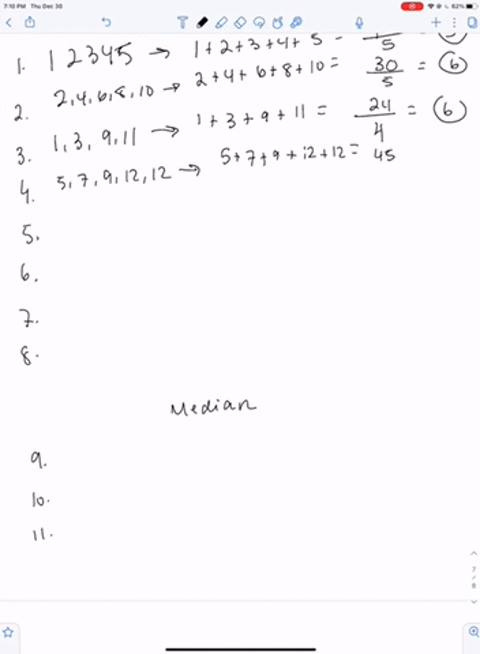 7:10 PM Thu Dec 30 62%
1. 1 2 3 4 5 → 1+2+3+4+5 = 5
2. 2,4,6,8,10 → 2+4+6+8+10 = 30/5 = 6
3. 1,3,9,11 → 1+3+9+11 = 24/4 = 6
4. 5,7,9,12,12 → 5+7+9+12+12= 45
5.
6.
7.
8.
Median
9.
10.
11.
7/8